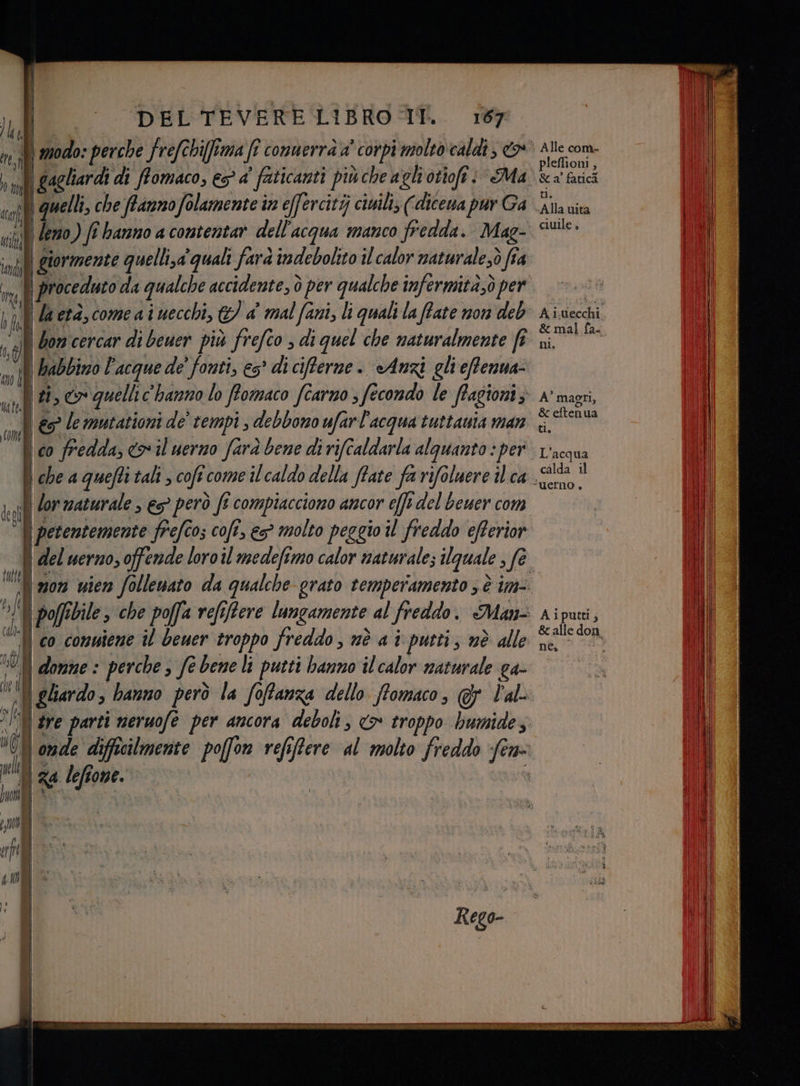 DEL TEVERE LIBRO II. 167
modo: perche freſchiſſima ſi conuerrà a' corpi molto caldi, &
gagliardi di ſtomaco, & a' faticanti più che agli otioſi: Ma
quelli, che ſtanno ſolamente in eſſercitij ciuili, (diceua pur Ga
leno) ſi hanno a contentar dell'acqua manco fredda. Mag-
giormente quelli, a' quali ſarà indebolito il calor naturale, ò ſia
proceduto da qualche accidente, ò per qualche infermità, ò per
la età, come a i uecchi, & a' mal ſani, li quali la ſtate non deb
bon cercar di beuer più freſco, di quel che naturalmente ſi
habbino l'acque de' fonti, & di ciſterne. Anzi gli eſtenua-
ti, & quelli c'hanno lo ſtomaco ſcarno, ſecondo le ſtagioni,
& le mutationi de' tempi, debbono uſar l'acqua tuttauia man
co fredda, & il uerno ſarà bene di riſcaldarla alquanto: per
che a queſti tali, coſi come il caldo della ſtate fa riſoluere il ca
lor naturale, & però ſi compiacciono ancor eſſi del beuer com
petentemente freſco; coſi, & molto peggio il freddo eſterior
del uerno, offende loro il medeſimo calor naturale; ilquale, ſe
non uien ſolleuato da qualche grato temperamento, è im-
poſſibile, che poſſa reſiſtere lungamente al freddo. Man-
co conuiene il beuer troppo freddo, nè a i putti, nè alle
donne: perche, ſe bene li putti hanno il calor naturale ga-
gliardo, hanno però la ſoſtanza dello ſtomaco, & l'al-
tre parti neruoſe per ancora deboli, & troppo humide,
onde difficilmente poſſon reſiſtere al molto freddo ſen-
za leſione.
Rego-
Alle com-
pleſſioni,
& a' faticā
ti.
Alla uita
ciuile.
A i uecchi
& mal ſa-
ni.
A' magri,
& eſtenua
ti.
L'acqua
calda il
uerno.
A i putti,
& alle don
ne.